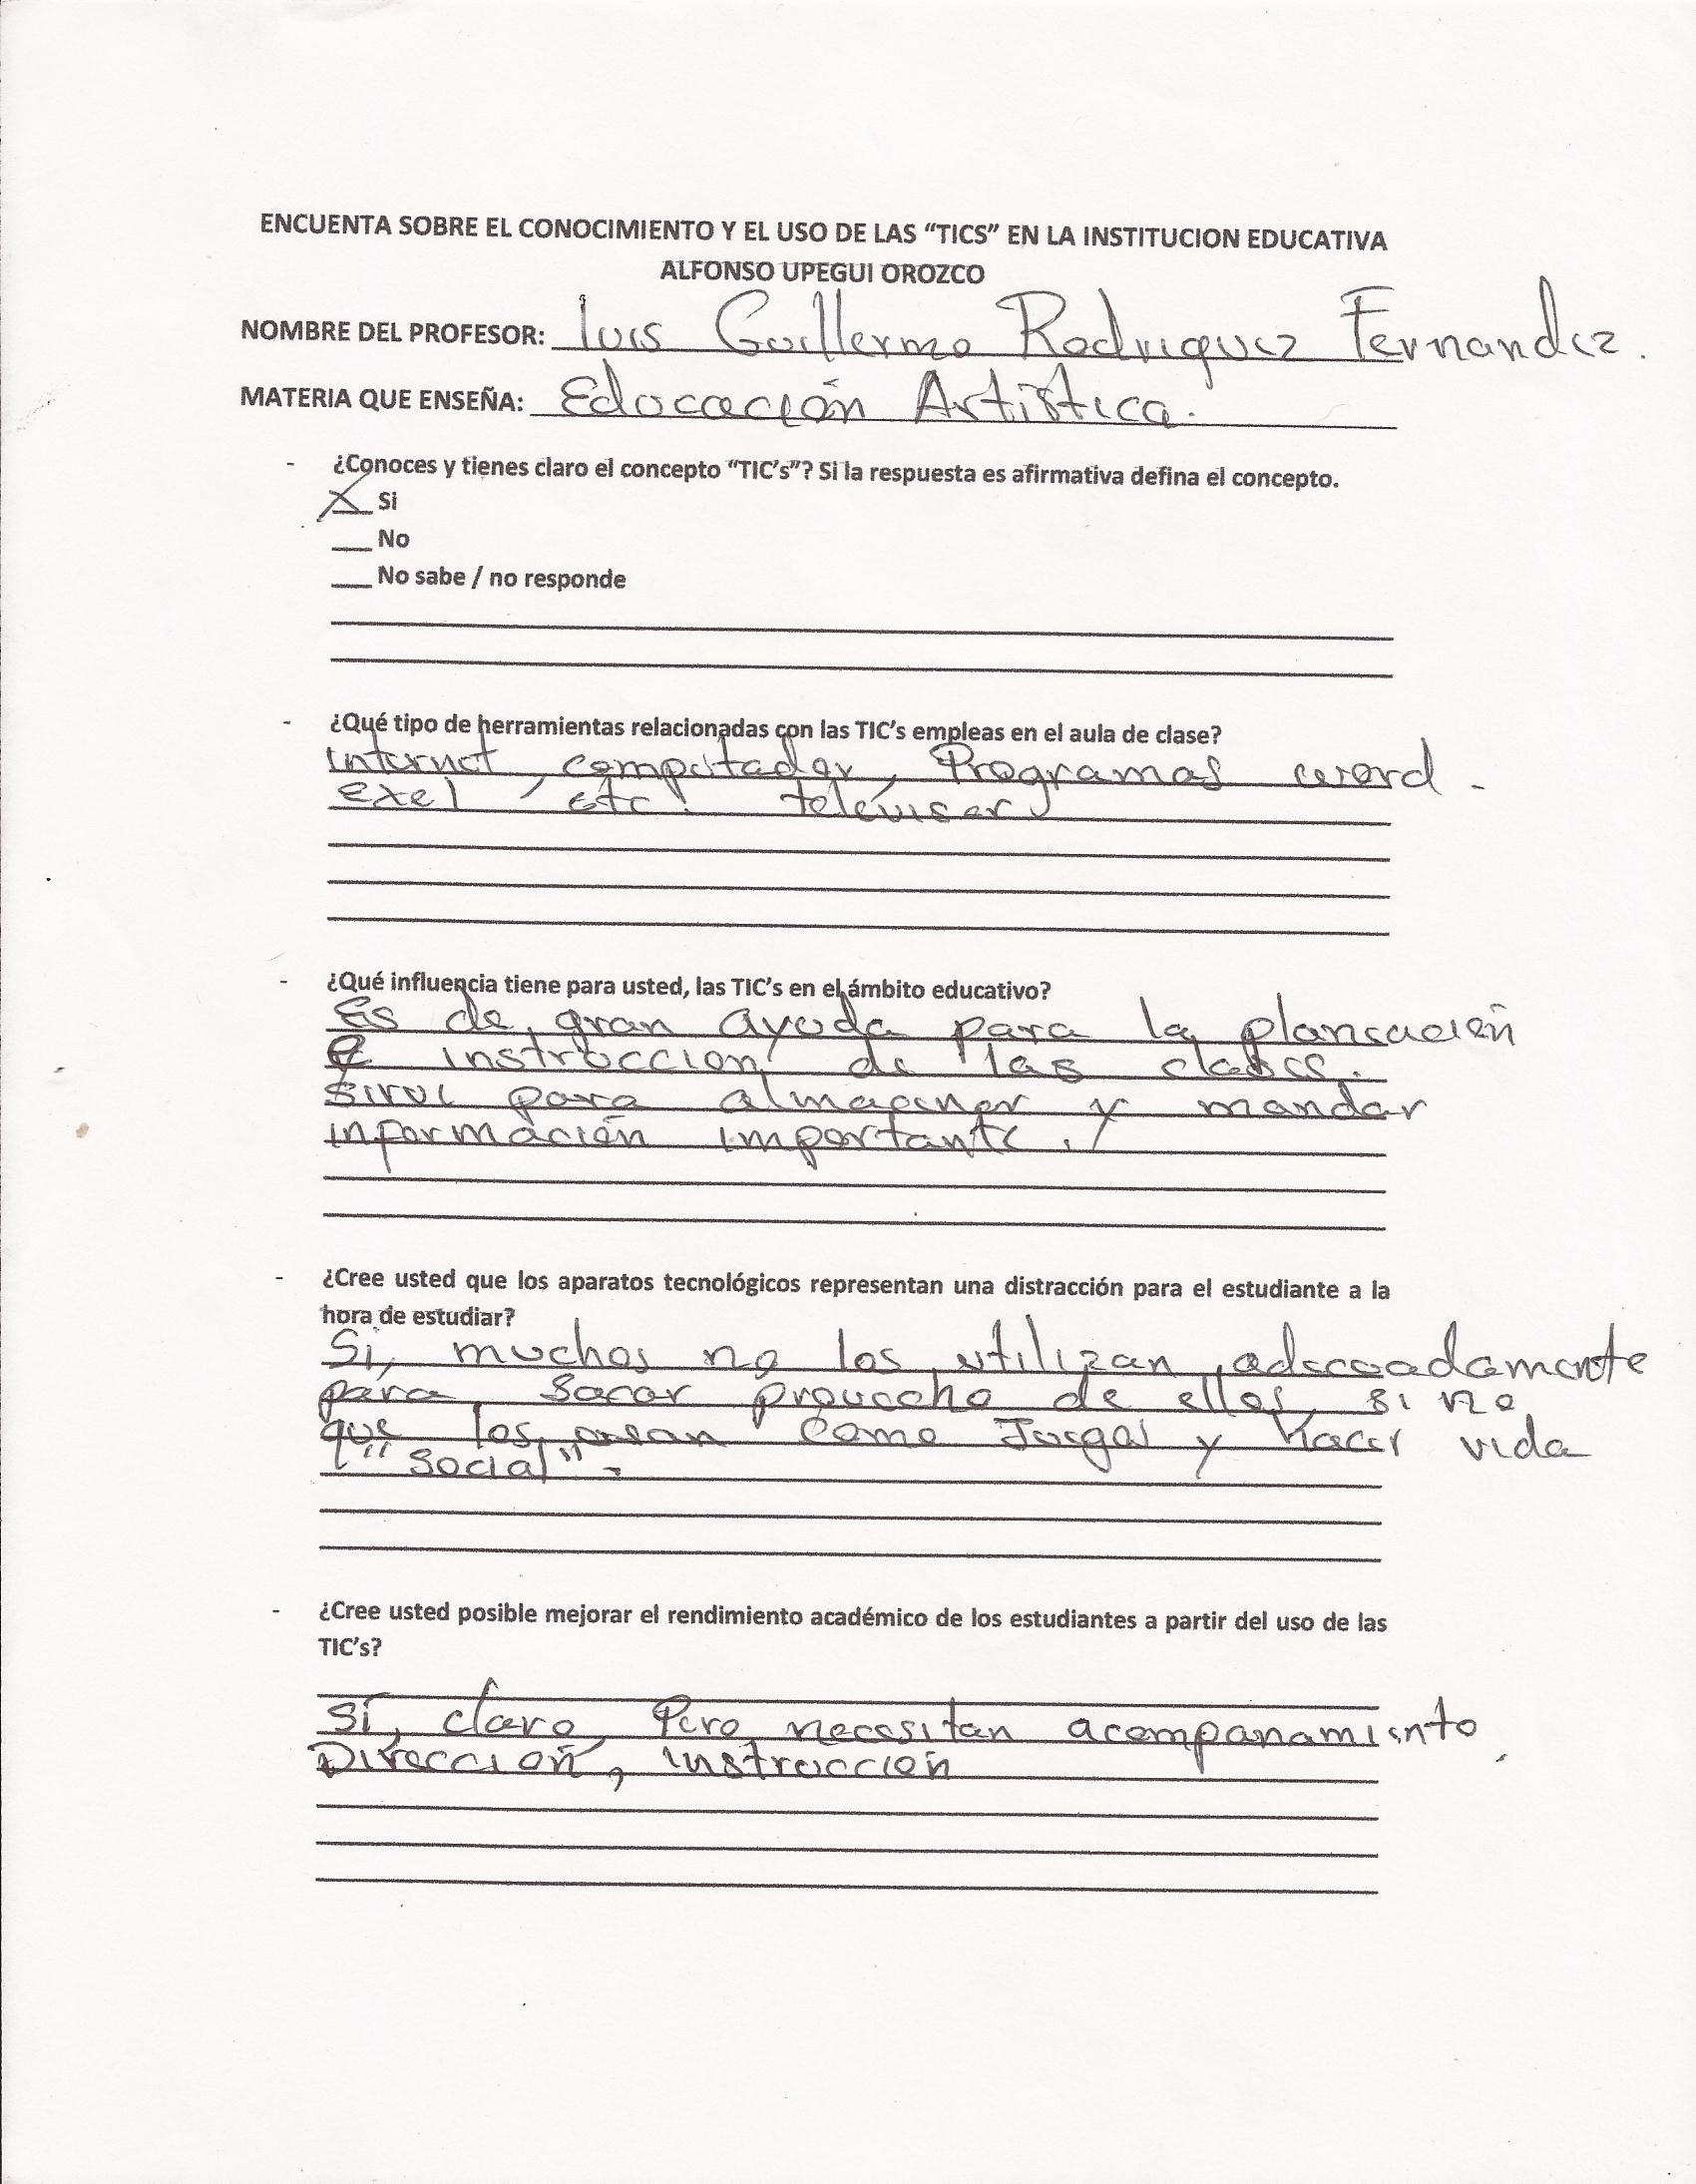 ENCUENTA SOBRE EL CONOCIMIENTO Y EL USO DE LAS “TICS” EN LA INSTITUCION EDUCATIVA
ALFONSO UPEGUI OROZCO
NOMBRE DEL PROFESOR: Luis Guillermo Rodriguez Fernandez.
MATERIA QUE ENSEÑA: Educación Artística.
- ¿Conoces y tienes claro el concepto “TIC’s”? Si la respuesta es afirmativa defina el concepto.
X Si
___ No
___ No sabe / no responde
- ¿Qué tipo de herramientas relacionadas con las TIC’s empleas en el aula de clase?
internet, computador, Programas word -
exel, etc. televisor
- ¿Qué influencia tiene para usted, las TIC’s en el ámbito educativo?
Es de gran ayuda para la planeación
e instruccion de las clases.
Sirve para almacenar y mandar
información importante.
- ¿Cree usted que los aparatos tecnológicos representan una distracción para el estudiante a la
hora de estudiar?
Si, muchos no los utilizan adecuadamente
para sacar provecho de ellos, si no
que los usan como Juegos y Hacer vida
"Social".
- ¿Cree usted posible mejorar el rendimiento académico de los estudiantes a partir del uso de las
TIC’s?
Sí, claro Pero necesitan acompanamiento,
Dirección, instrucción